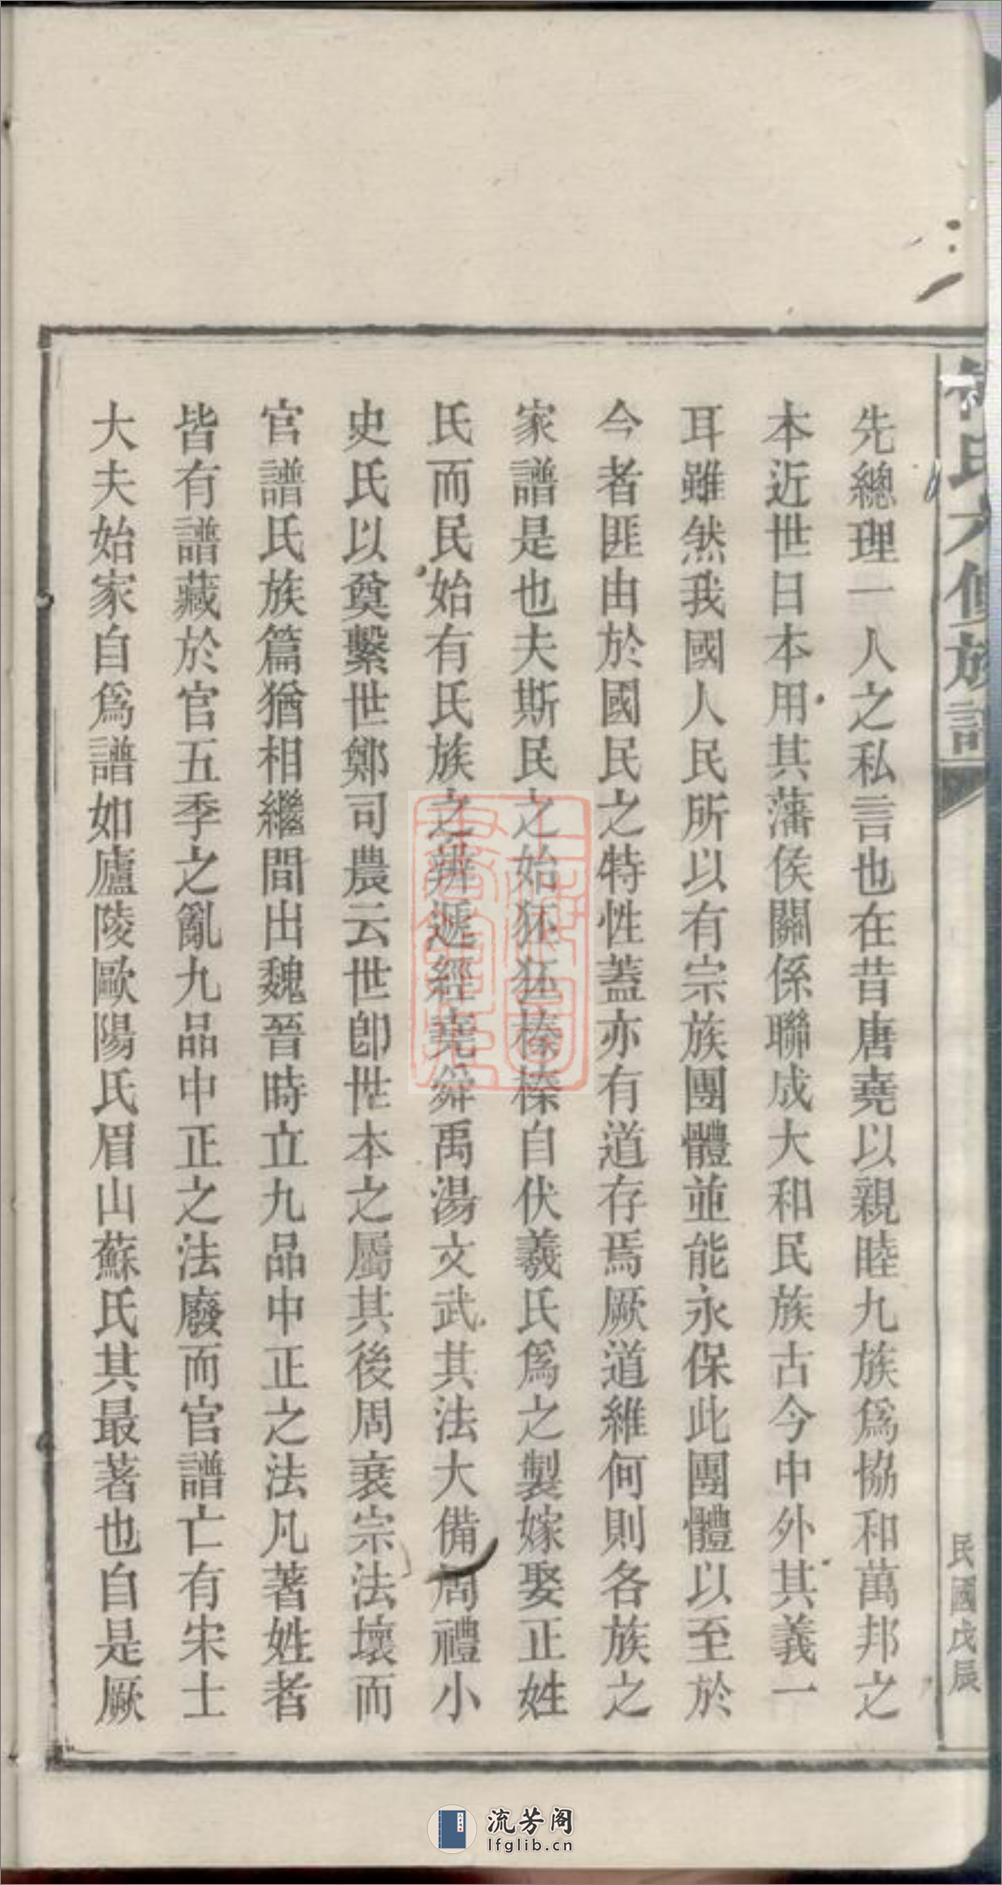 氏六修族譜
民國戊辰
先總理一人之私言也在昔唐堯以親睦九族爲協和萬邦之
本近世日本用其藩侯關係聯成大和民族古今中外其義一
耳雖然我國人民所以有宗族團體並能永保此團體以至於
今者匪由於國民之特性蓋亦有道存焉厥道維何則各族之
家譜是也夫斯民之始狉狉榛榛自伏羲氏爲之製嫁娶正姓
氏而民始有氏族之辨遞經堯舜禹湯文武其法大備周禮小
史氏以奠繫世鄭司農云世卽世本之屬其後周衰宗法壞而
官譜氏族篇猶相繼間出魏晉時立九品中正之法凡著姓者
皆有譜藏於官五季之亂九品中正之法廢而官譜亡有宋士
大夫始家自爲譜如廬陵歐陽氏眉山蘇氏其最著也自是厥
流芳阁
lfglib.cn